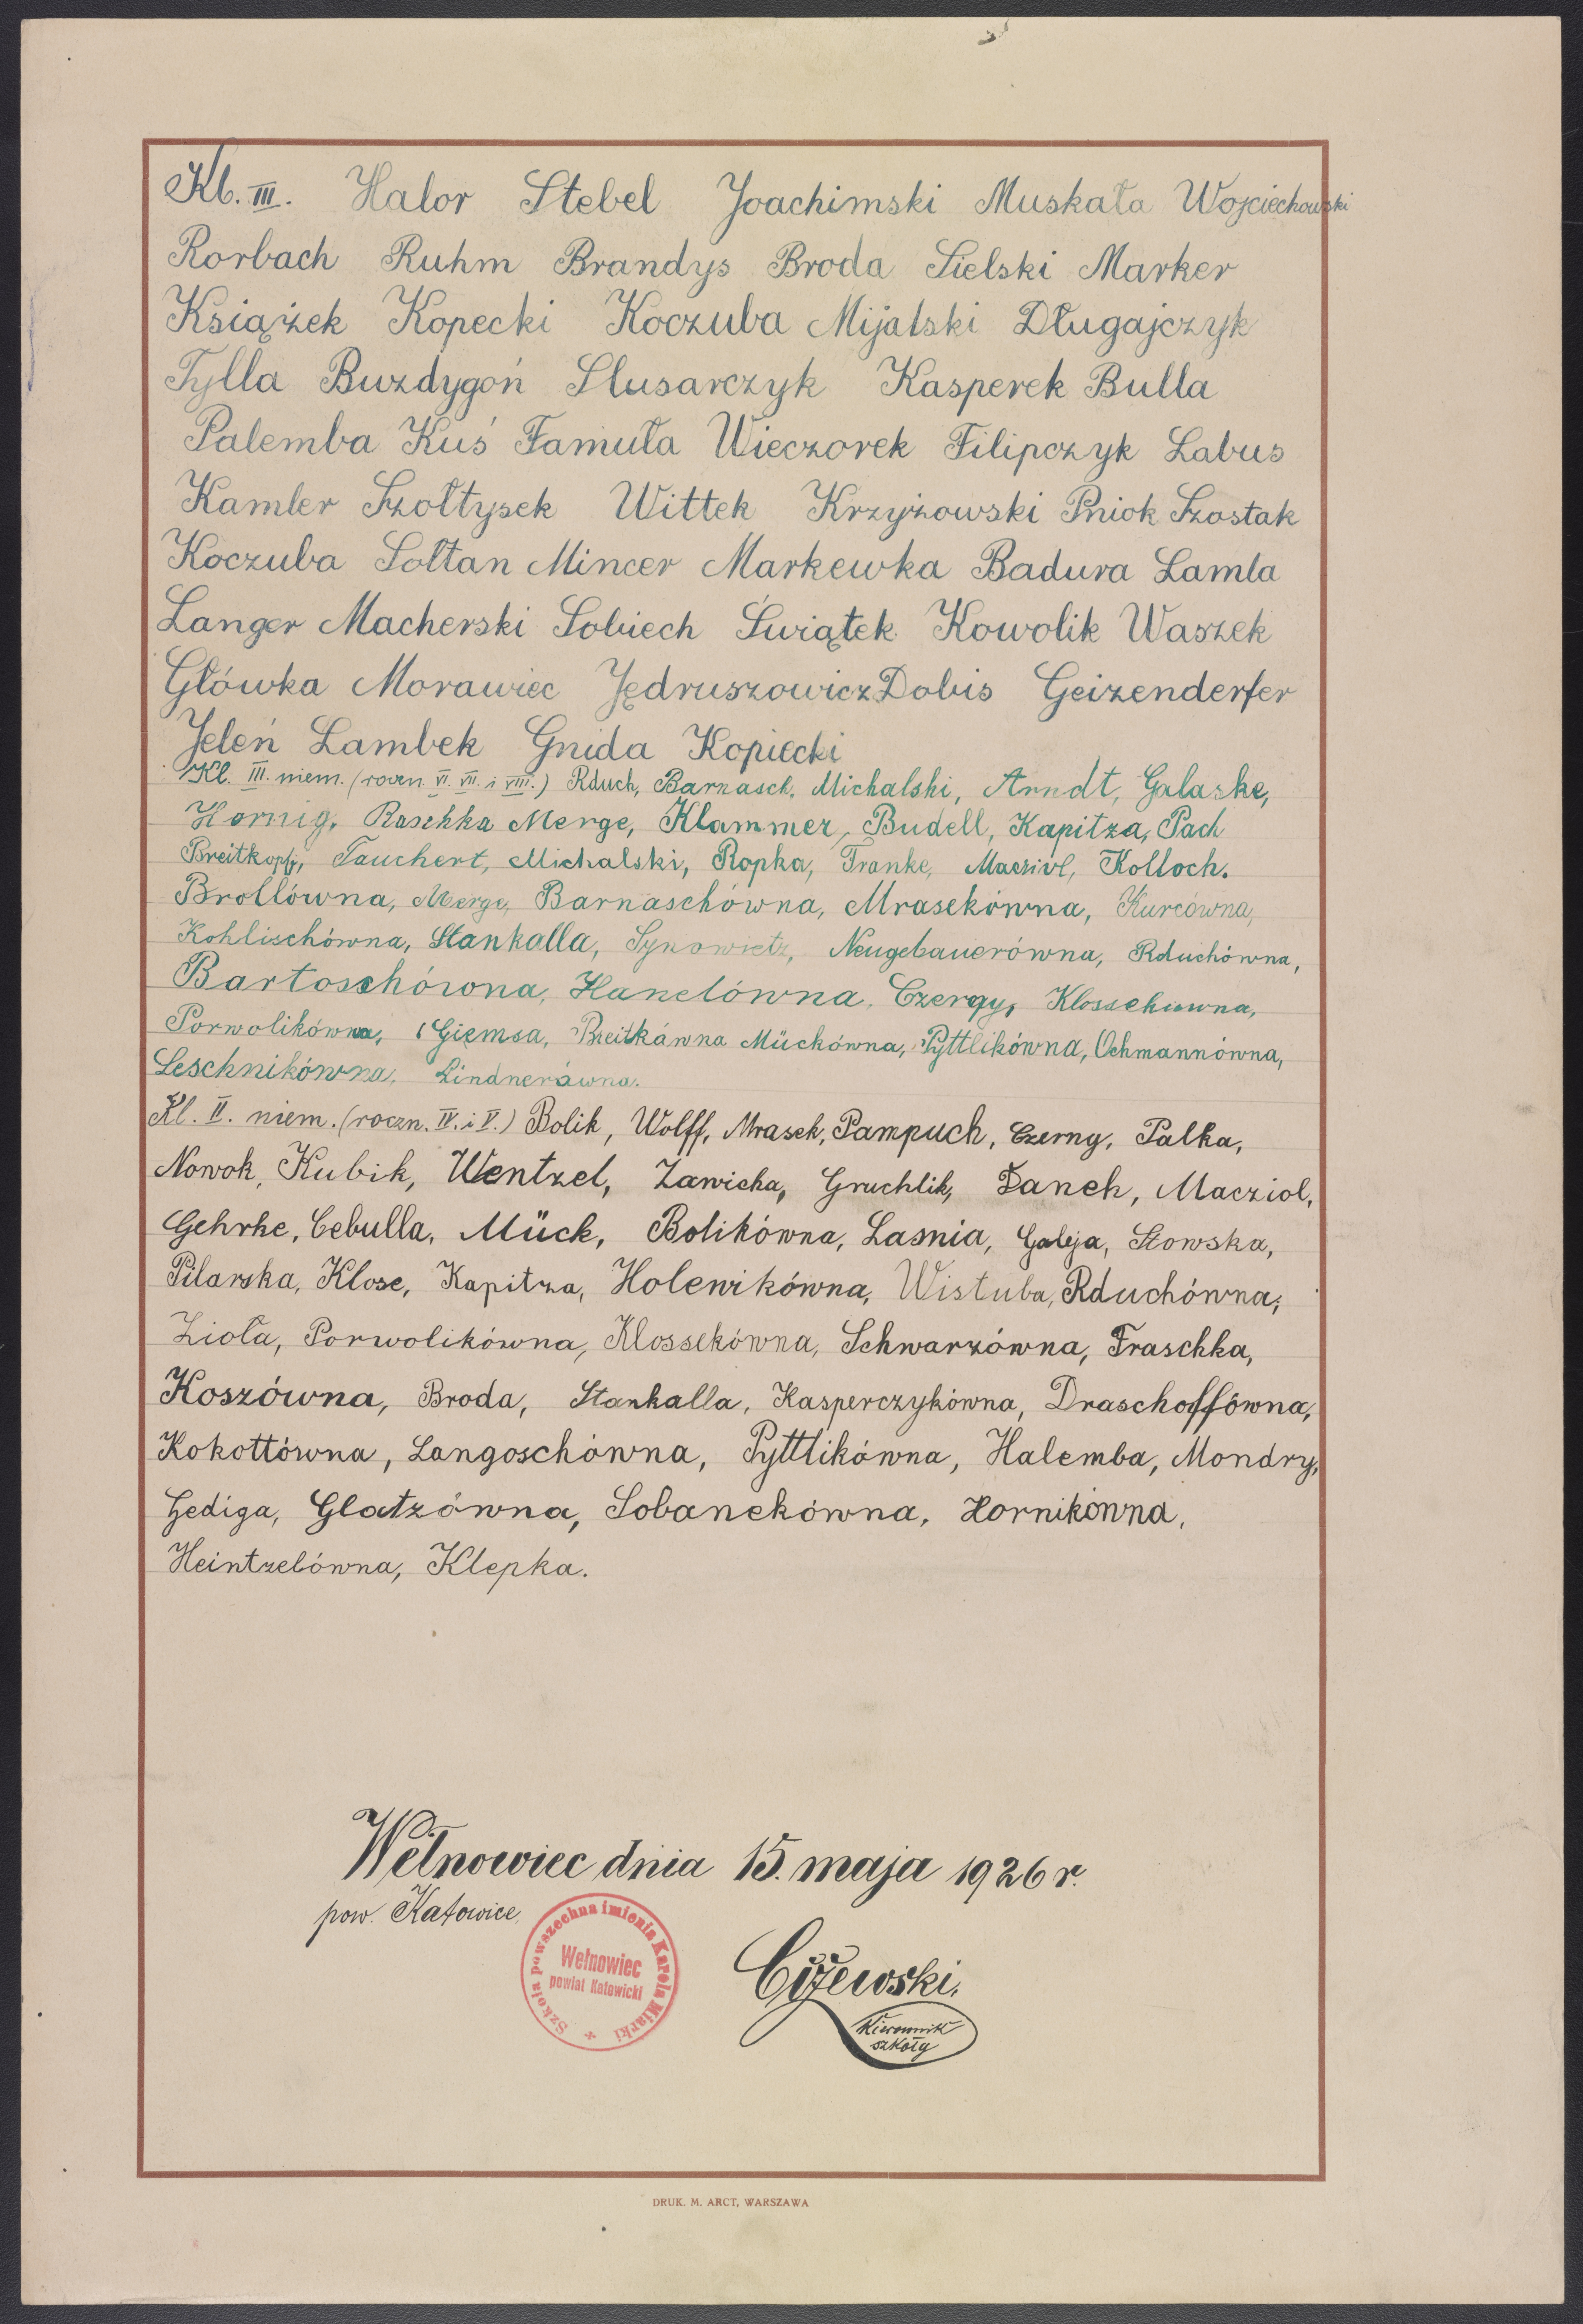 Kl. III. Halor Stebel Joachimski Muskała Wojciechowski
Rorbach Ruhm Brandys Broda Sielski Marker
Książek Kopecki Koczuba Mijalski Długajczyk
Tylla Buzdygoń Slusarczyk Kasperek Bulla
Palemba Kuś Famuła Wieczorek Filipczyk Labus
Kamler Szołtysek Wittek Krzyżowski Pniok Szostak
Koczuba Sołtan Mincer Markewka Badura Lamla
Langer Macherski Sobiech Świątek Kowolik Waszek
Główka Morawiec Jędruszowicz Dobis Geizenderfer
Jeleń Lambek Gnida Kopiecki
Kl. III. niem. (roczn. VI. VII. i VIII.) Rduch, Barnasch, Michalski, Arndt, Galaske,
Hornig, Raschka Merge, Klammer, Budell, Kapitza, Pach
Breitkopf, Tauchert, Michalski, Ropka, Franke, Macziol, Kolloch.
Brollówna, Merge, Barnaschówna, Mrasekówna, Kurcówna,
Kohlischówna, Stankalla, Synowietz, Neugebauerówna, Rduchówna,
Bartoschówna, Hanelówna, Czergy, Klossekówna,
Porwolikówna, Giemsa, Breitkówna Mückówna, Pyttlikówna, Ochmannówna,
Leschnikówna, Lindnerówna.
Kl. II. niem. (roczn. IV. i V.) Bolik, Wolff, Mrasek, Pampuch, Czerny, Palka,
Nowok, Kubik, Wentzel, Zawicha, Gruchlik, Danch, Macziol,
Gehrke, Cebulla, Mück, Bolikówna, Lasnia, Galeja, Słowska,
Pilarska, Klose, Kapitza, Holewikówna, Wistuba, Rduchówna,
Zioła, Porwolikówna, Klossekówna, Schwarzówna, Fraschka,
Koszówna, Broda, Stankalla, Kasperczykówna, Draschoffówna,
Kokottówna, Langoschówna, Pyttlikówna, Halemba, Mondry,
Gediga, Glatzówna, Sobanekówna, Hornikówna,
Heintzelówna, Klepka.
Wełnowiec dnia 15. maja 1926 r.
pow. Katowice
Szkoła powszechna imienia Karola Miarki
Wełnowiec
powiat Katowicki
Cyżewski,
Kierownik
szkoły
DRUK. M. ARCT, WARSZAWA